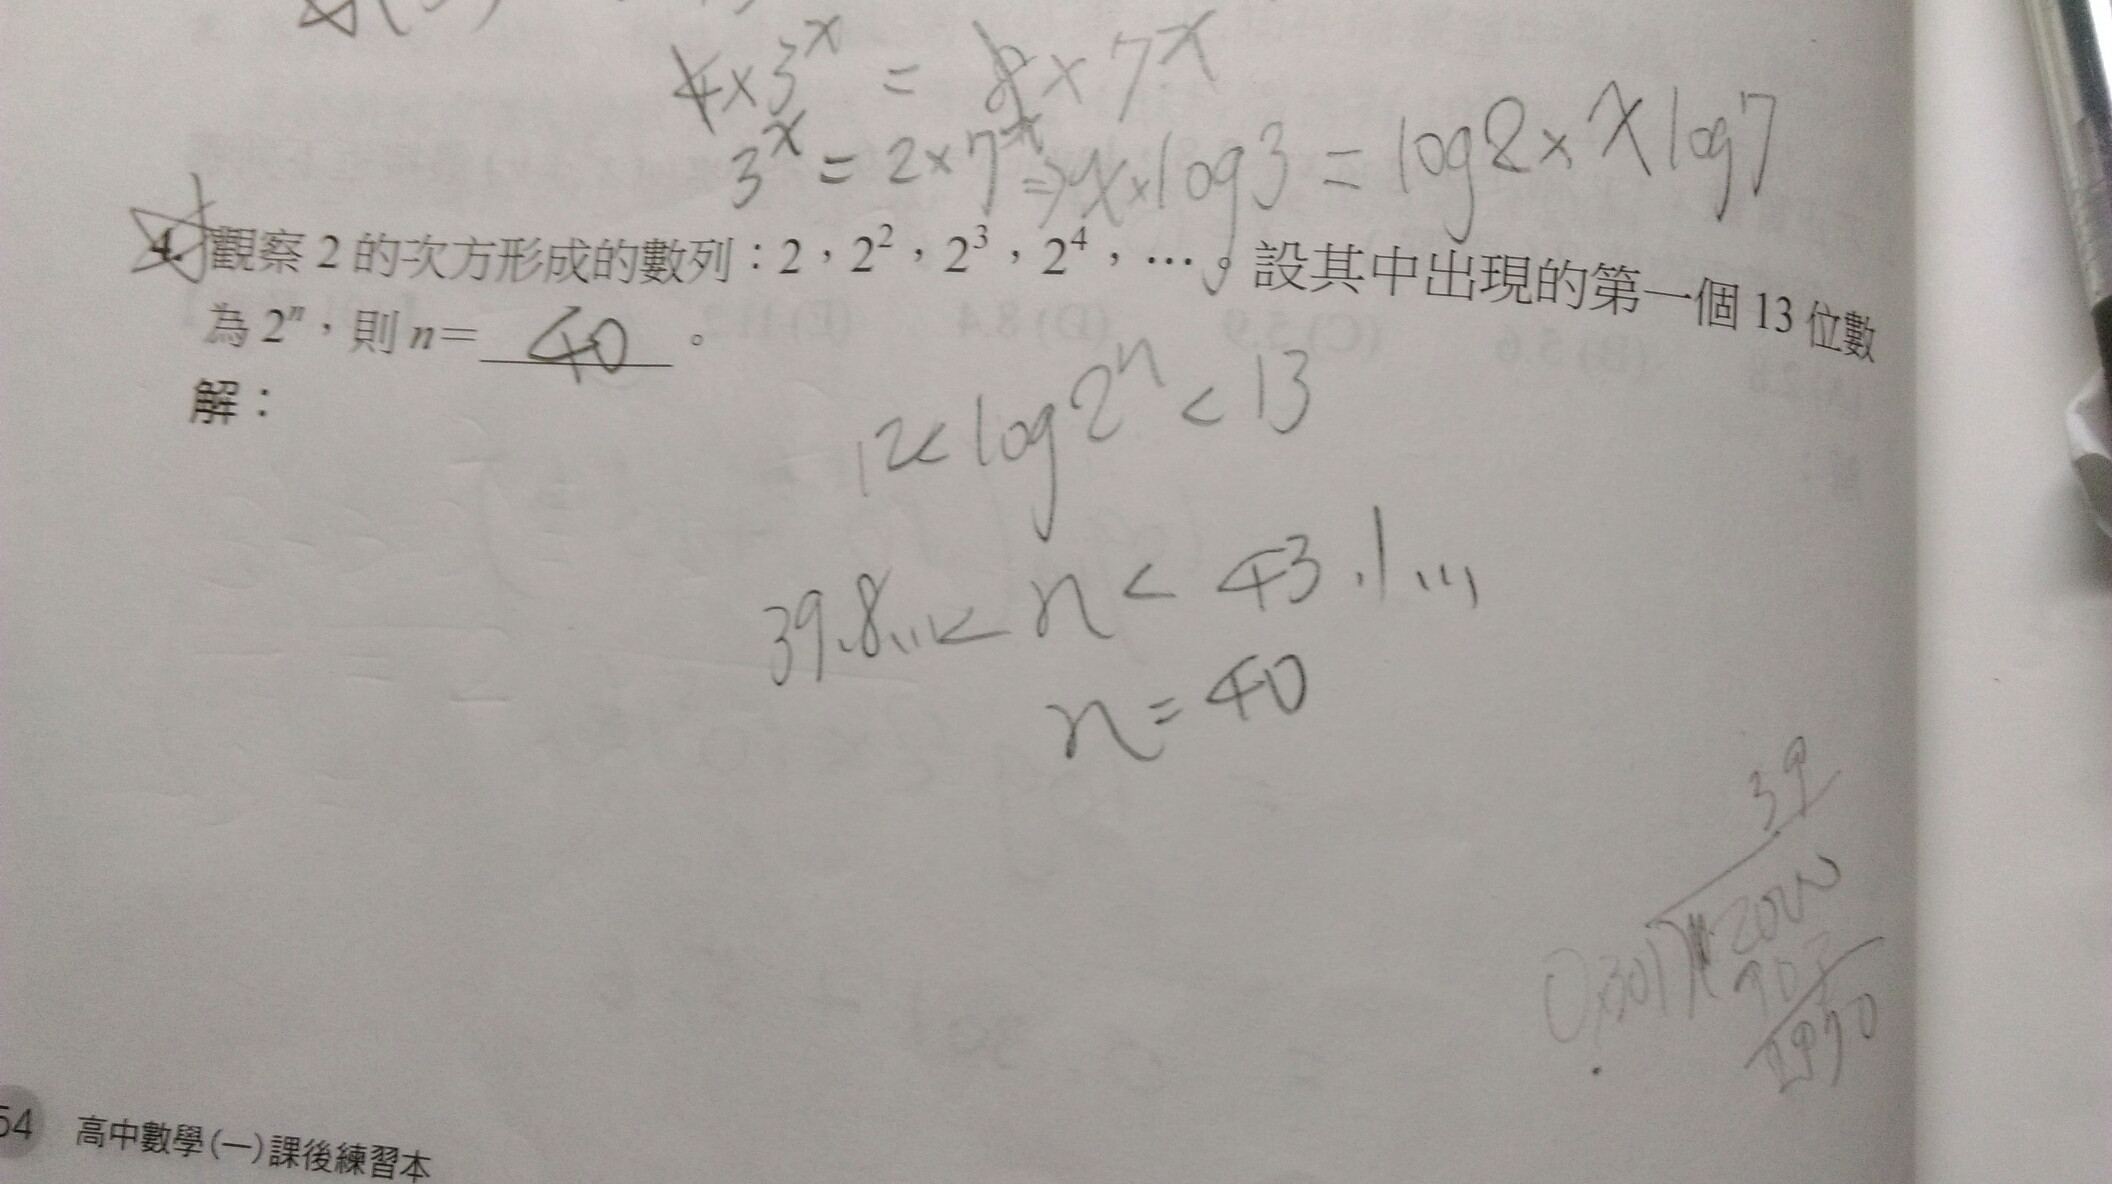 4×3^x = 8×7^x
3^x = 2×7^x ⇒ x×log3 = log2×xlog7
4. 觀察 2 的次方形成的數列：2，2²，2³，2⁴，…。設其中出現的第一個 13 位數
為 2ⁿ，則 n= 40 。
解：
12< log2ⁿ < 13
39.8...< n < 43.1...
n=40
39
0.301
907
2930
54 高中數學(一)課後練習本